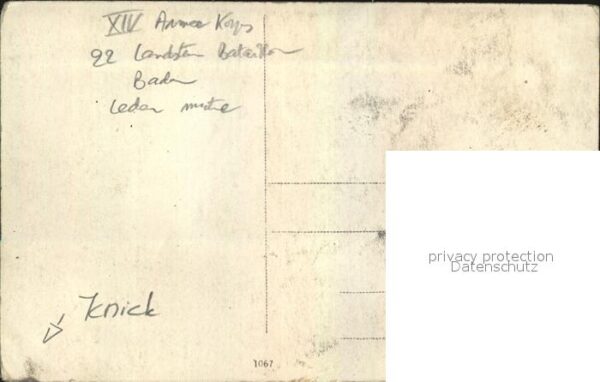 XIV Armee Korps
22 Landstm Bataillon
Baden
Leder mütze
Knick
1067
privacy protection
Datenschutz